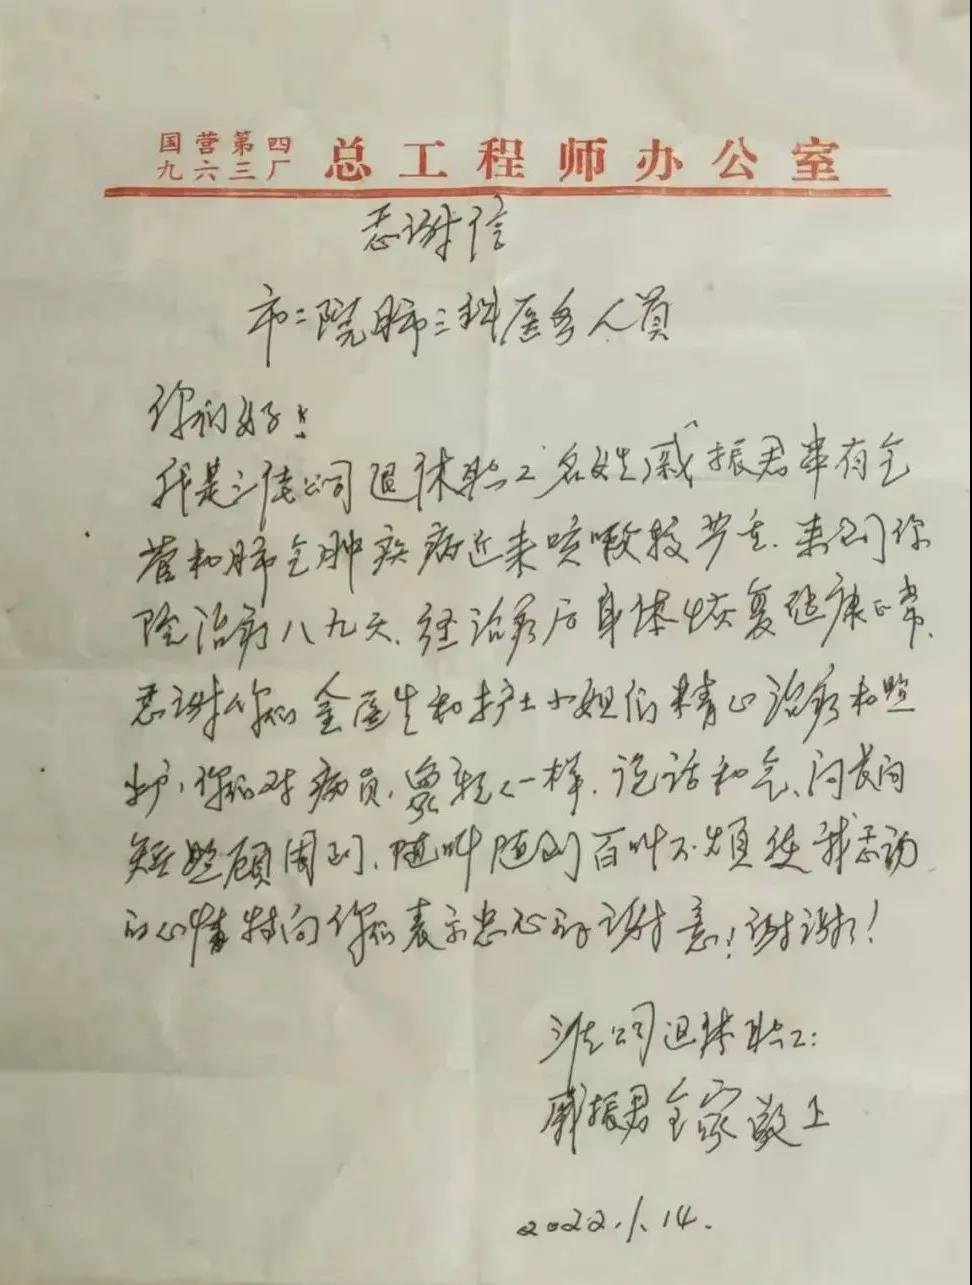 国营第四
九六三厂 总工程师办公室
感谢信
市二院肺三科医务人员
你们好！
我是三佳公司退休职工名姓戚振君患有气
管和肺气肿疾病近来咳嗽较严重.来到你
院治疗八九天.经治疗后身体恢复健康正常.
感谢你们全医生和护士小姐们精心治疗和照
护,你们对病员,象亲人一样.说话和气、问长问
短照顾周到、随叫随到百叫不烦使我感动
的心情特向你们表示忠心的谢意！谢谢！
三佳公司退休职工:
戚振君全家敬上
2022.1.14.